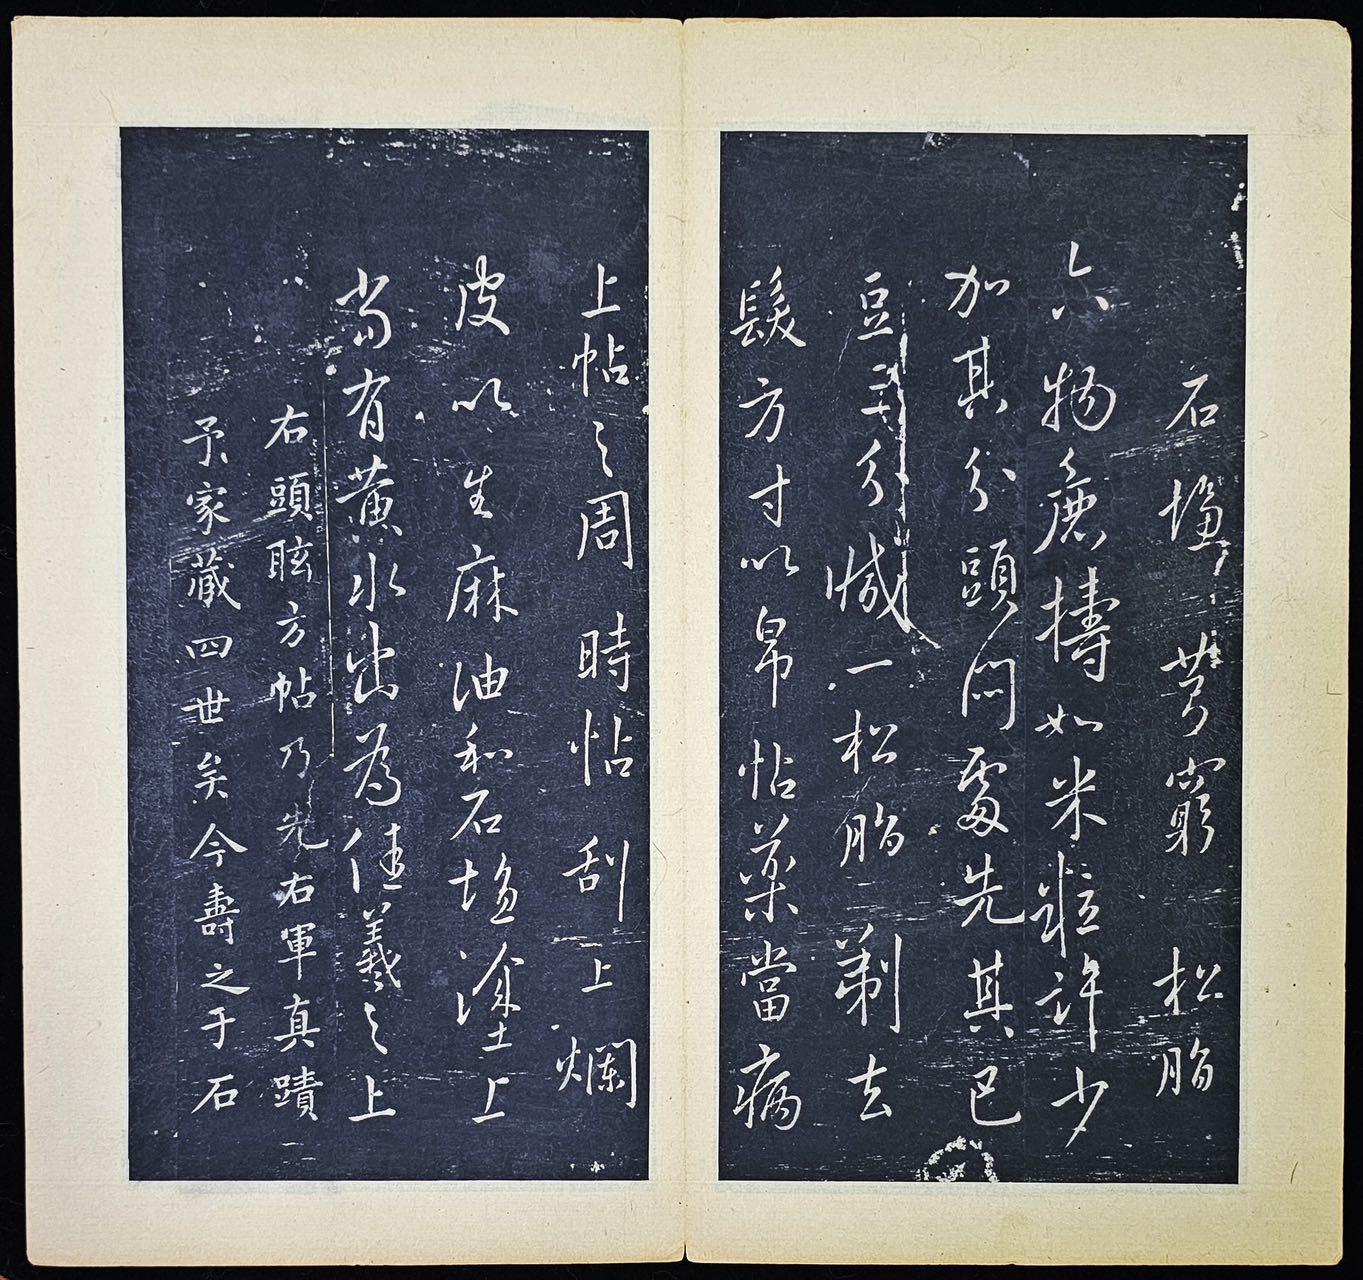 石塩 芎窮 松脂
六物麁擣如米粒許少
加其分頭悶處先其巳
豆二分減一松脂剃去
髮方寸以帛帖藥當病
上帖之周時帖刮上爛
皮以生麻油和石塩塗上
當有黃水出為佳羲之上
右頭眩方帖乃先右軍真蹟
予家藏四世矣今壽之于石